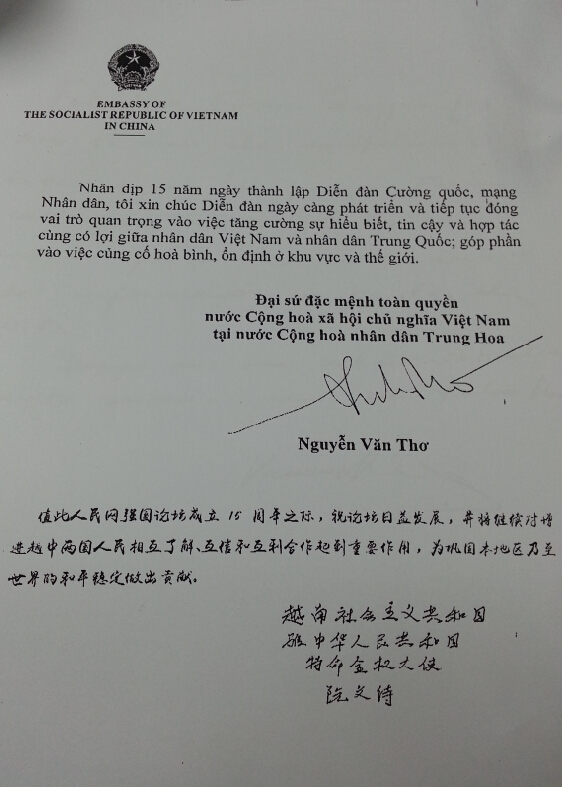 EMBASSY OF
THE SOCIALIST REPUBLIC OF VIETNAM
IN CHINA
Nhân dịp 15 năm ngày thành lập Diễn đàn Cường quốc, mạng
Nhân dân, tôi xin chúc Diễn đàn ngày càng phát triển và tiếp tục đóng
vai trò quan trọng vào việc tăng cường sự hiểu biết, tin cậy và hợp tác
cùng có lợi giữa nhân dân Việt Nam và nhân dân Trung Quốc; góp phần
vào việc củng cố hoà bình, ổn định ở khu vực và thế giới.
Đại sứ đặc mệnh toàn quyền
nước Cộng hoà xã hội chủ nghĩa Việt Nam
tại nước Cộng hoà nhân dân Trung Hoa
Nguyễn Văn Thơ
值此人民网强国论坛成立15周年之际，祝论坛日益发展，并将继续对增
进越中两国人民相互了解、互信和互利合作起到重要作用，为巩固本地区乃至
世界的和平稳定做出贡献。
越南社会主义共和国
驻中华人民共和国
特命全权大使
阮文诗